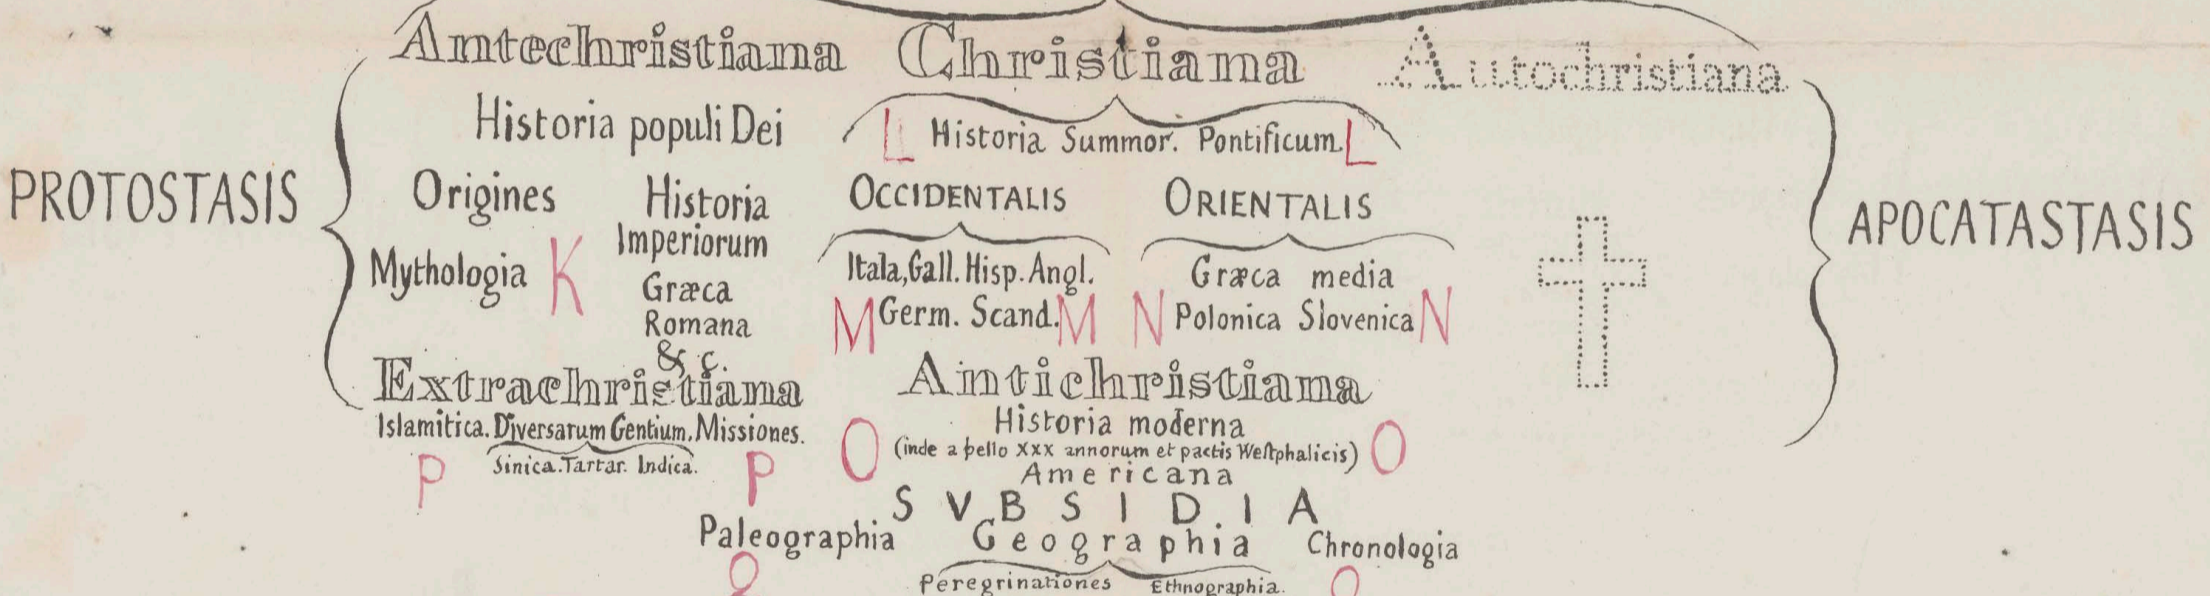 Antechristiana Christiana Autochristiana
Historia populi Dei
L Historia Summor. Pontificum. L
PROTOSTASIS
Origines
Mythologia K
Historia
Imperiorum
Græca
Romana
& ç.
OCCIDENTALIS
Itala, Gall. Hisp. Angl.
M Germ. Scand. M
ORIENTALIS
Græca media
N Polonica Slovenica N
APOCATASTASIS
Extrachristiana
Islamitica. Diversarum Gentium. Missiones.
P Sinica. Tartar. Indica. P
Antichristiana
Historia moderna
O (inde a bello XXX annorum et pactis Weſtphalicis) O
Americana
SVBSIDIA
Paleographia Geographia Chronologia
Peregrinationes Ethnographia.